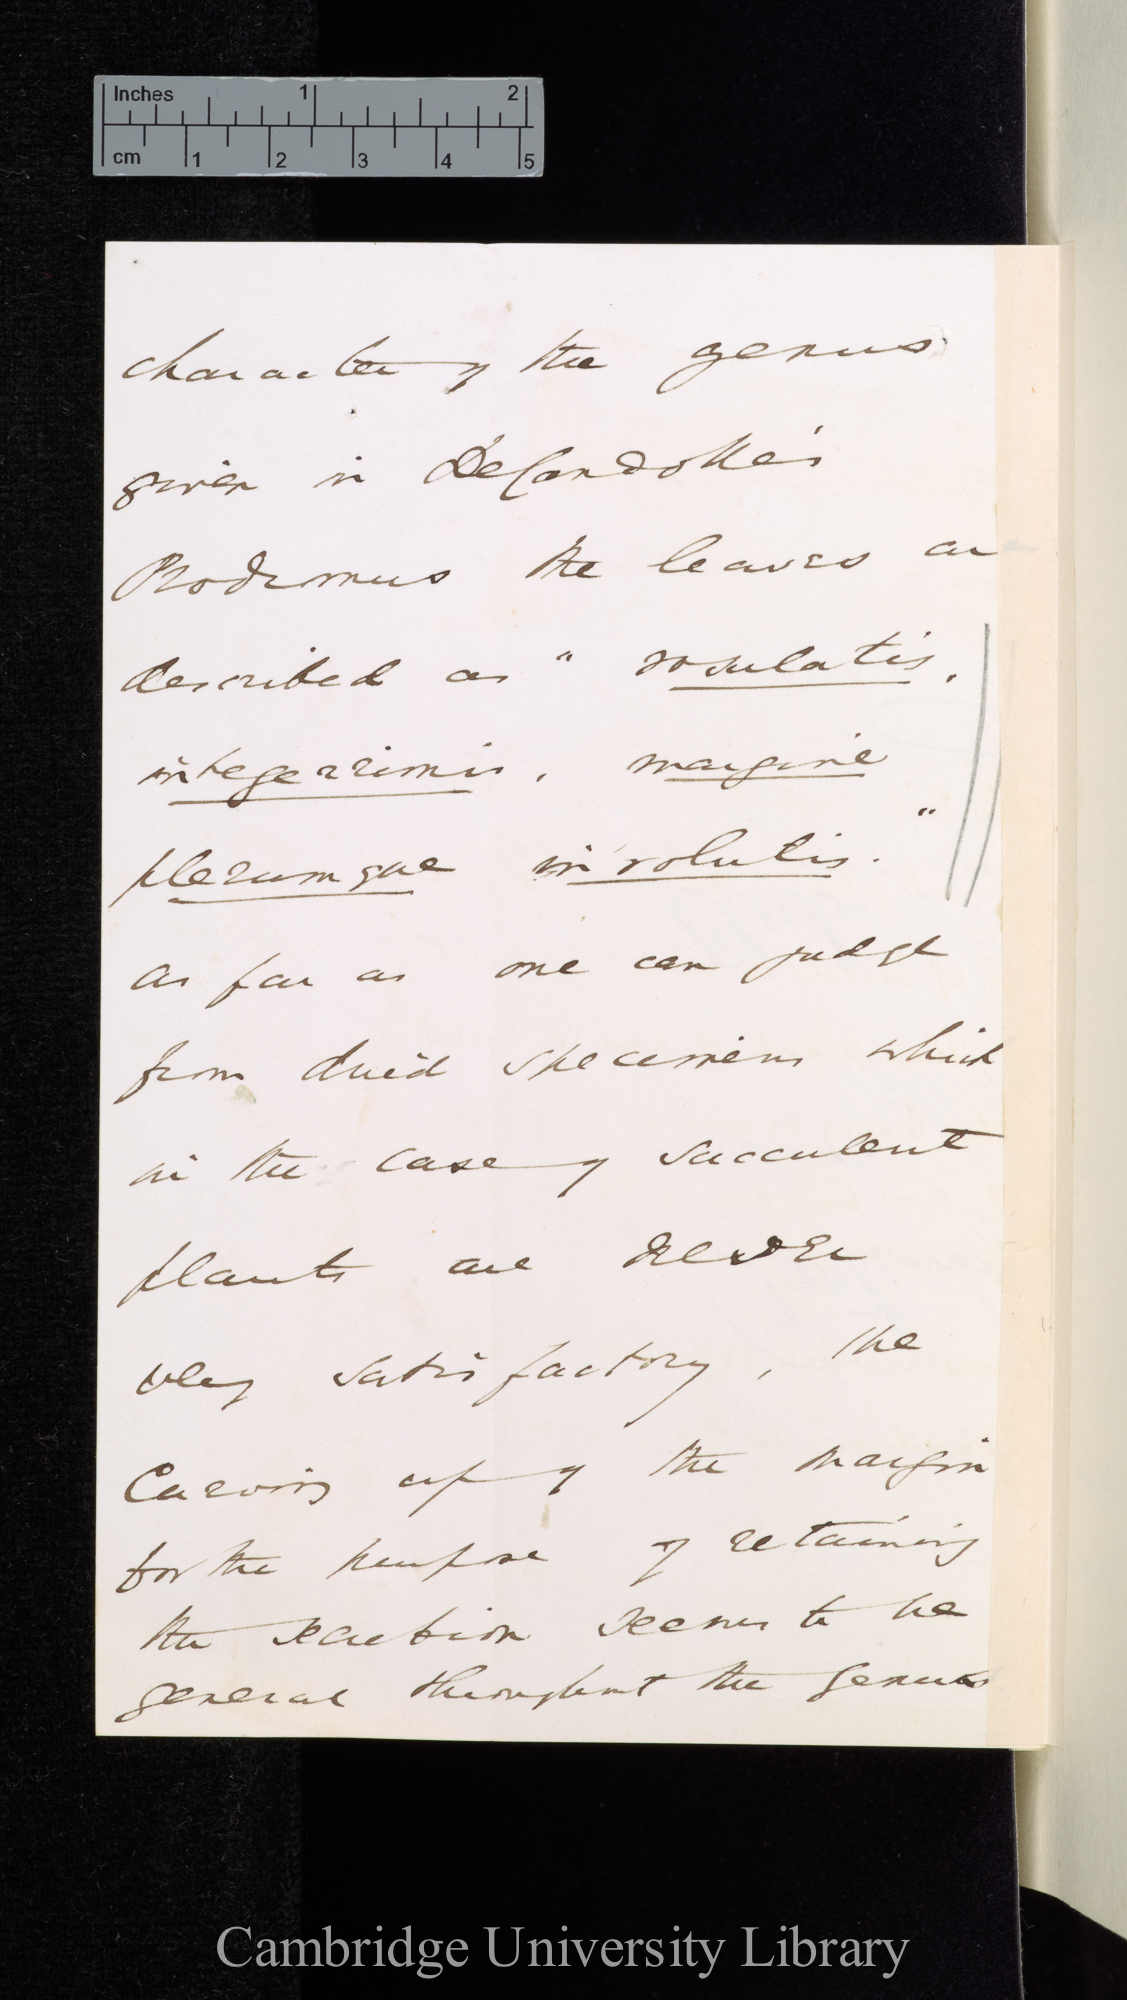 Inches 1 2
cm 1 2 3 4 5
character of the genus
given in DeCandolle's
Prodromus the leaves are
described as "rosulatis,
integerrimis, margine
plerumque involutis."
as far as one can judge
from dried specimens which
in the case of succulent
plants are never
very satisfactory, the
Curving up of the margin
for the purpose of retaining
the secretion seems to be
general throughout the genus
Cambridge University Library